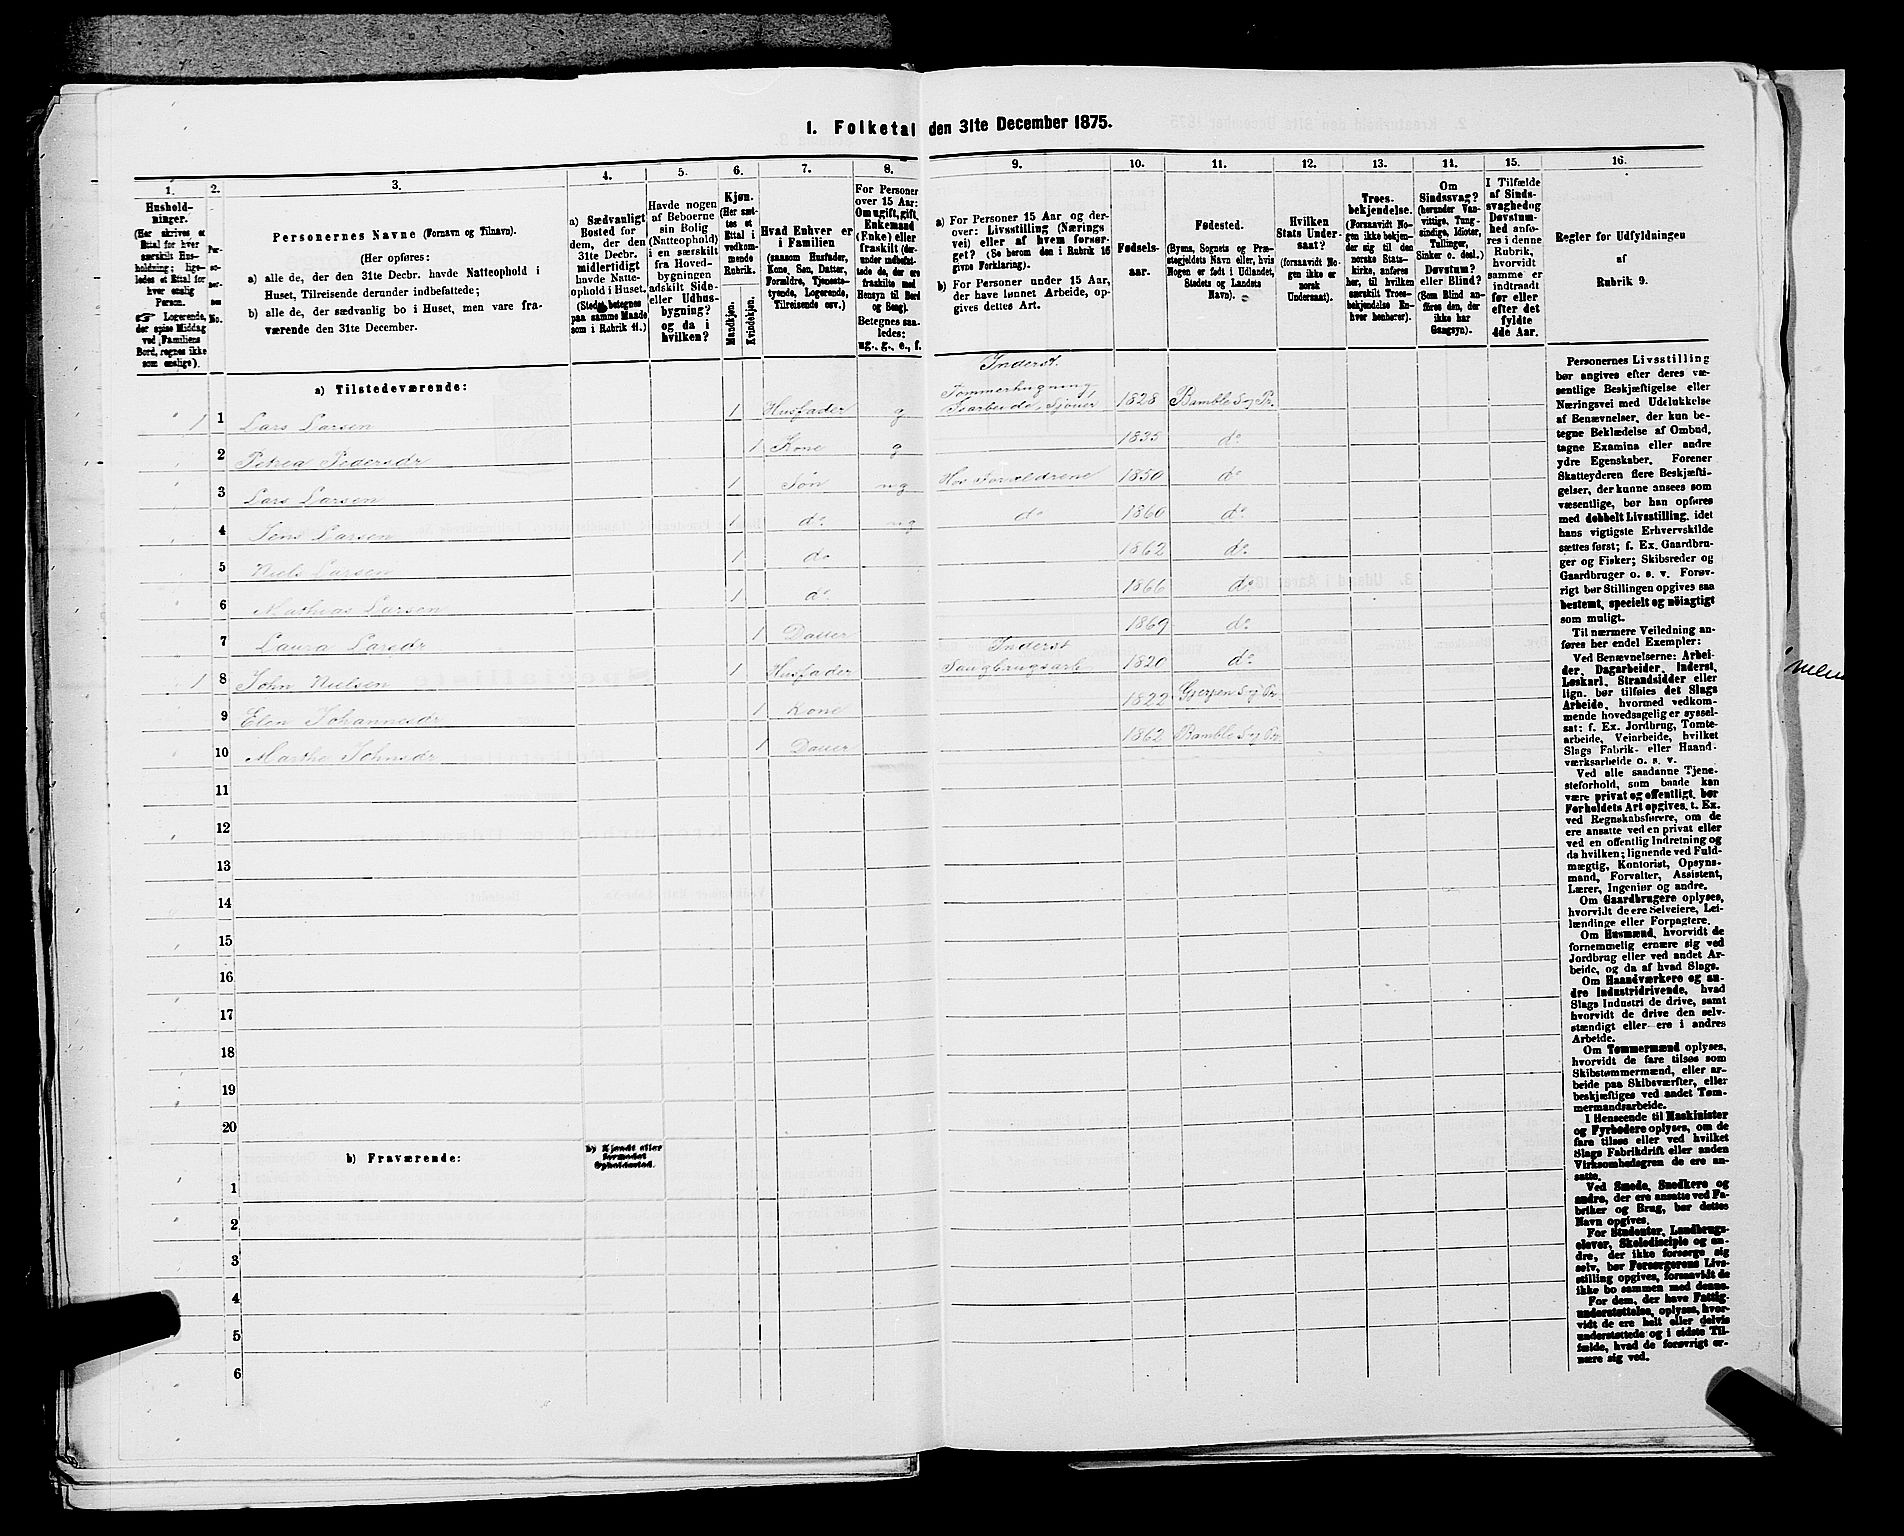 1. Folketal den 31te December 1875.
1. 2. 3. 4. 5. 6. 7. 8. 9. 10. 11. 12. 13. 14. 15. 16.
Hushold-
ninger.
(Her skrives et
Ettal for hver
særskilt Hus-
holdning; lige-
ledes et Ettal for
hver enslig
Person.
Logerende,
der spise Middag
ved Familiens
Bord, regnes ikke
som enslige).
Per-
so-
ner-
nes
No.
Personernes Navne (Fornavn og Tilnavn).
(Her opføres:
a) alle de, der den 31te Decbr. havde Natteophold i
Huset, Tilreisende derunder indbefattede;
b) alle de, der sædvanlig bo i Huset, men vare fra-
værende den 31te December.
a) Sædvanligt
Bosted for
dem, der den
31te Decbr.
midlertidigt
havde Natte-
ophold i Huset.
(Stedet betegnes
paa samme Maade
som i Rubrik 11.)
Havde nogen
af Beboerne
sin Bolig
(Natteophold)
i en særskilt
fra Hoved-
bygningen
adskilt Side-
eller Udhus-
bygning?
og da i
hvilken?
Kjøn.
(Her sæt-
tes et
Ettal i
vedkom-
mende
Rubrik.
Mandkjøn.
Kvindekjøn.
Hvad Enhver er
i Familien
(saasom Husfader,
Kone, Søn, Datter,
Forældre, Tjeneste-
tyende, Logerende,
Tilreisende osv.)
For Personer
over 15 Aar:
Om ugift, gift,
Enkemand
(Enke) eller
fraskilt (der-
under indbefat-
tede de, der ere
fraskilte med
Hensyn til Bord
og Seng).
Betegnes saa-
ledes:
ug., g., e., f.
a) For Personer 15 Aar og der-
over: Livsstilling (Nærings
vei) eller af hvem forsør-
get? (Se herom den i Rubrik 16
givne Forklaring).
b) For Personer under 15 Aar,
der have lønnet Arbeide, op-
gives dettes Art.
Fødsels-
aar.
Fødested.
(Byens, Sognets og Præ-
stegjeldets Navn eller, hvis
Nogen er født i Udlandet,
Stedets og Landets
Navn).
Hvilken
Stats Under-
saat?
(forsaavidt No-
gen ikke er
norsk
Undersaat).
Troes-
bekjendelse.
(Forsaavidt No-
gen ikke bekjen-
der sig til den
norske Stats-
kirke, anføres
her, til hvilken
særskilt Troes-
bekjendelse En-
hver henhører).
Om
Sindssvag?
(herunder Van-
vittige, Tung-
sindige, Idioter,
Tullinger,
Sinker o. desl.)
Døvstum?
eller Blind?
(Som Blind an-
føres den, der
ikke har
Gangsyn).
I Tilfælde
af Sinds-
svaghed og
Døvstum-
hed anfø-
res i denne
Rubrik,
hvorvidt
samme er
indtraadt
før eller
efter det
fyldte
4de Aar.
Regler for Udfyldningen
af
Rubrik 9.
a) Tilstedeværende:
Inderst.
Tømmerhugning,
1 1 Lars Larsen 1 Husfader g Isarbeide, Sjouer 1828 Bamble S. og Pr.
2 Petrea Pedersdr 1 Kone g 1835 do
3 Lars Larsen 1 Søn ug Hos Forældrene 1850 do
4 Jens Larsen 1 do ug do 1860 do
5 Niels Larsen 1 do 1862 do
6 Mathias Larsen 1 do 1866 do
7 Laura Larsdr 1 Datter 1869 do
Inderst
1 8 John Nielsen 1 Husfader Saugbrugsarb. 1820 do
9 Elen Johannesdr 1 Kone 1822 Gjerpen S. og Pr
10 Marthe Johnsdr 1 Datter 1862 Bamble S. og Pr
11
12
13
14
15
16
17
18
19
20
b) Fraværende:
b) Kjendt eller
formodet
Opholdssted.
1
2
3
4
5
6
Personernes Livsstilling
bør angives efter deres væ-
sentlige Beskjæftigelse eller
Næringsvei med Udelukkelse
af Benævnelser, der kun be-
tegne Beklædelse af Ombud,
tagne Examina eller andre
ydre Egenskaber. Forener
Skatteyderen flere Beskjæfti-
gelser, der kunne ansees som
væsentlige, bør han opføres
med dobbelt Livsstilling, idet
hans vigtigste Erhvervskilde
sættes først; f. Ex. Gaardbru-
ger og Fisker; Skibsreder og
Gaardbruger o. s. v. Forøv-
rigt bør Stillingen opgives saa
bestemt, specielt og nøiagtigt
som muligt.
Til nærmere Veiledning an-
føres her endel Exempler:
Ved Benævnelserne: Arbei-
der, Dagarbeider, Inderst,
Løskarl, Strandsidder eller
lign. bør tilføies det Slags
Arbeide, hvormed vedkom-
mende hovedsagelig er syssel-
sat: f. Ex. Jordbrug, Tomte-
arbeide, Veiarbeide, hvilket
Slags Fabrik- eller Haand-
værksarbeide o. s. v.
Ved alle saadanne Tjene-
steforhold, som baade kan
være privat og offentligt, bør
Forholdets Art opgives, t. Ex.
ved Regnskabsførere, om de
ere ansatte ved en privat eller
ved en offentlig Indretning og
da hvilken; lignende ved Fuld-
mægtig, Kontorist, Opsyns-
mand, Forvalter, Assistent,
Lærer, Ingeniør og andre.
Om Gaardbrugere oplyses,
hvorvidt de ere Selveiere, Lei-
lændinge eller Forpagtere.
Om Husmænd, hvorvidt de
fornemmelig ernære sig ved
Jordbrug eller ved andet Ar-
beide, og da af hvad Slags.
Om Haandværkere og an-
dre Industridrivende, hvad
Slags Industri de drive, samt
hvorvidt de drive den selv-
stændigt eller ere i andres
Arbeide.
Om Tømmermænd oplyses,
hvorvidt de fare tilsøs som
Skibstømmermænd, eller ar-
beide paa Skibsværfter, eller
beskjæftiges ved andet Tøm-
mermandsarbeide.
I Henseende til Maskinister
og Fyrbødere oplyses, om de
fare tilsøs eller ved hvilket
Slags Fabrikdrift eller anden
Virksomhedsgren de ere an-
satte.
Ved Smede, Snedkere og
andre, der ere ansatte ved Fa-
briker og Brug, bør dettes
Navn opgives.
For Studenter, Landbrugs-
elever, Skoledisciple og an-
dre, der ikke forsørge sig
selv, bør Forsørgerens Livs-
stilling opgives, forsaavidt de
ikke bo sammen med denne.
For dem, der have Fattig-
understøttelse, oplyses, hvor-
vidt de ere helt eller delvis
understøttede og i sidste Til-
fælde, hvad de forøvrigt er-
nære sig ved.